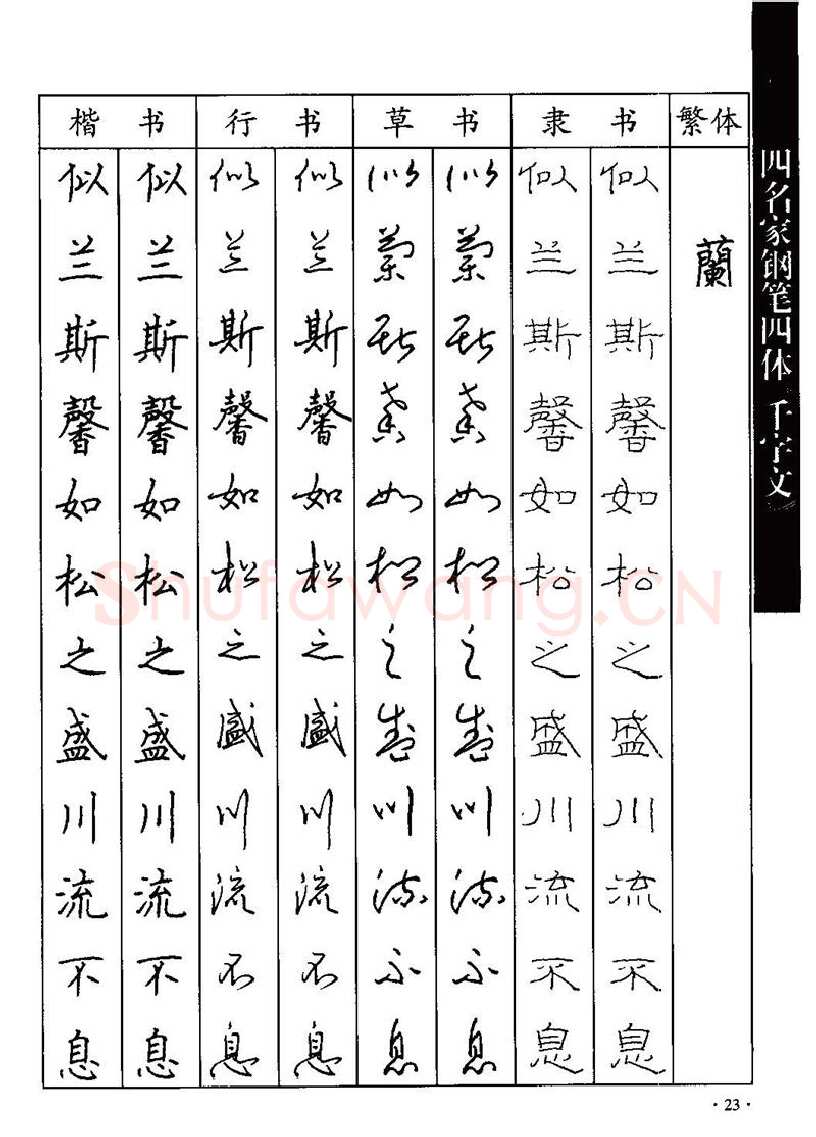 楷书 行书 草书 隶书 繁体
似 似 似 似 似 似 似 似
兰 兰 兰 兰 兰 兰 兰 兰 蘭
斯 斯 斯 斯 斯 斯 斯 斯
馨 馨 馨 馨 馨 馨 馨 馨
如 如 如 如 如 如 如 如
松 松 松 松 松 松 松 松
之 之 之 之 之 之 之 之
盛 盛 盛 盛 盛 盛 盛 盛
川 川 川 川 川 川 川 川
流 流 流 流 流 流 流 流
不 不 不 不 不 不 不 不
息 息 息 息 息 息 息 息
四名家钢笔四体《千字文》
Shufawang.CN
·23·